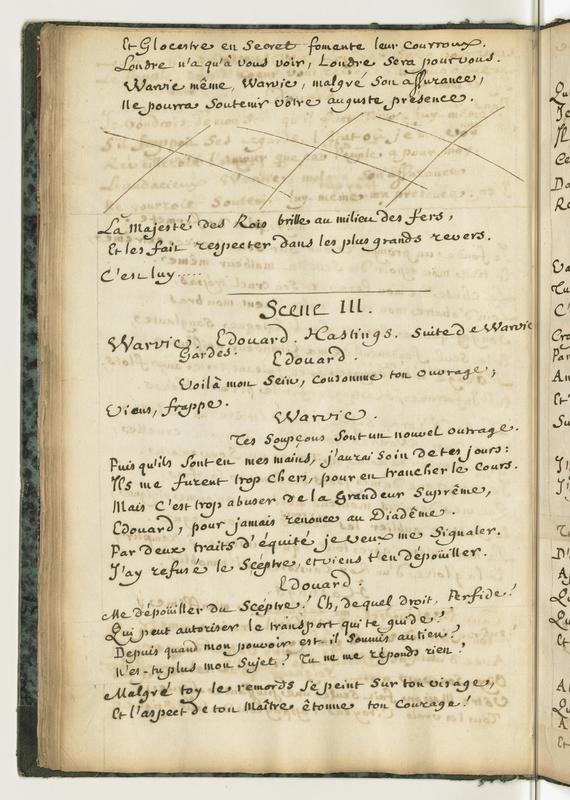 Et Glocestre en Secret fomente leur Courroux.
Londre n'a qu'à vous voir, Londre Sera pour vous.
Warvic même, Warvic, malgré Son assurance,
Ne pourra Soutenir vôtre auguste presence.
La Majesté des Rois brille au milieu des fers,
Et les fait respecter dans les plus grands revers.
C'est luy.....
Scene III.
Warvic. Edouard. Hastings. Suite de Warvic
Gardes.
Edouard.
Voilà mon Sein, couronne ton ouvrage;
Viens, frappe.
Warvic.
Tes Soupçons Sont un nouvel outrage.
Puis qu'ils Sont en mes mains, j'aurai Soin de tes jours:
Ils me furent trop chers, pour en trancher le Cours.
Mais C'est trop abuser de la Grandeur Suprême,
Edouard, pour jamais renonce au Diadême.
Par deux traits d'équité je veux me Signaler.
J'ay refusé le Scéptre, et viens t'en dépoüiller.
Edouard.
Me dépoüiller du Scéptre! Eh, de quel droit, Perfide!
Qui peut autoriser le transport qui te guide?
Depuis quand mon pouvoir est il Soumis au tien?
N'es-tu plus mon Sujet? Tu ne me réponds rien!
Malgré toy le remords Se peint Sur ton visage,
Et l'aspect de ton Maître étonne ton Courage!